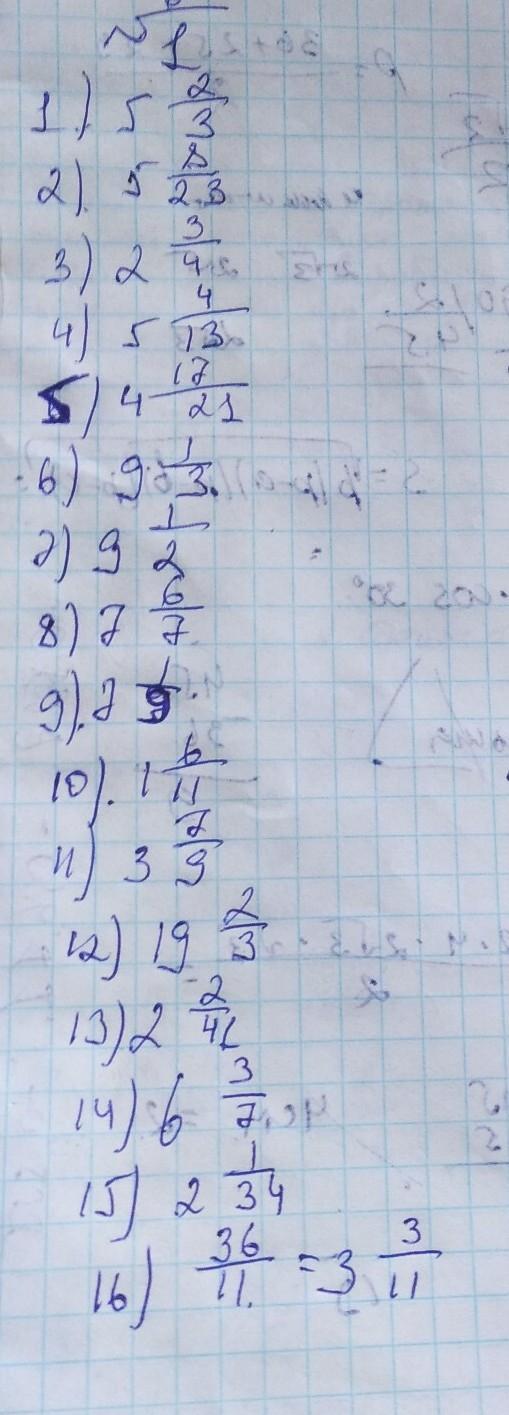 1
1). 5 2/3
2). 5 8/23
3) 2 3/4
4) 5 4/13
5) 4 17/21
6) 9 1/3.
7) 9 1/2
8) 7 6/7
9). 7 1/9
10). 1 6/11
11) 3 7/9
12) 19 2/3
13) 2 2/41
14) 6 3/7
15) 2 1/34
16) 36/11. = 3 3/11